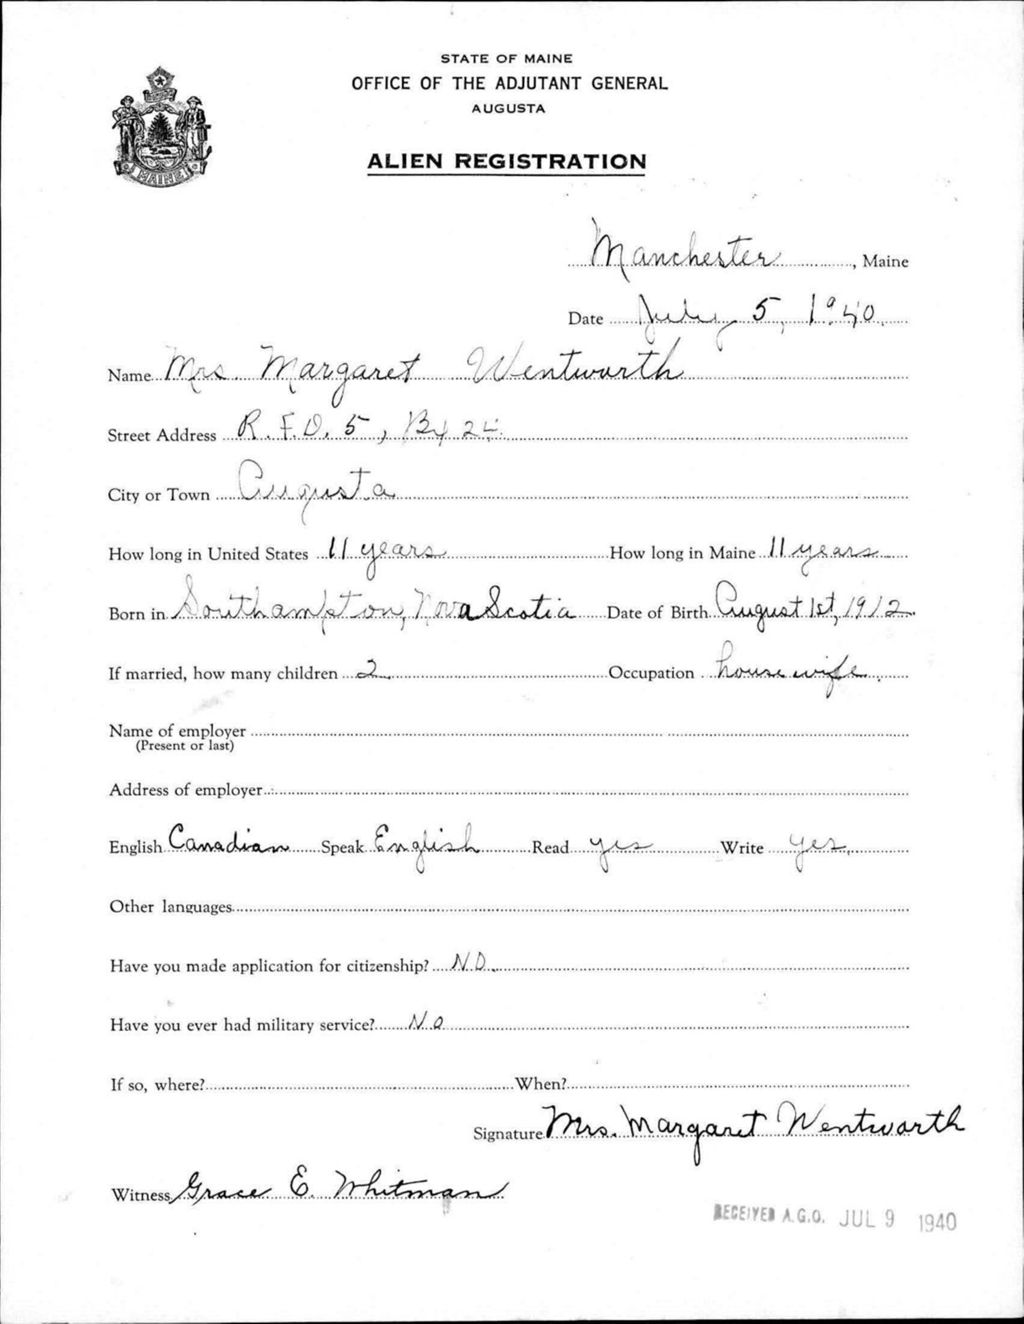 STATE OF MAINE
OFFICE OF THE ADJUTANT GENERAL
AUGUSTA
ALIEN REGISTRATION
MAINE
Manchester, Maine
Date July 5, 1940
Name Mrs. Margaret Wentworth
Street Address R.F.D. 5, Bx 24
City or Town Augusta
How long in United States 11 years How long in Maine 11 years
Born in Southampton, Nova Scotia Date of Birth August 1st, 1912
If married, how many children 2 Occupation housewife
Name of employer
(Present or last)
Address of employer
English Canadian Speak English Read yes Write yes
Other languages
Have you made application for citizenship? No
Have you ever had military service? No
If so, where? When?
Signature Mrs. Margaret Wentworth
Witness Grace E. Whitman
RECEIVED A.G.O. JUL 9 1940